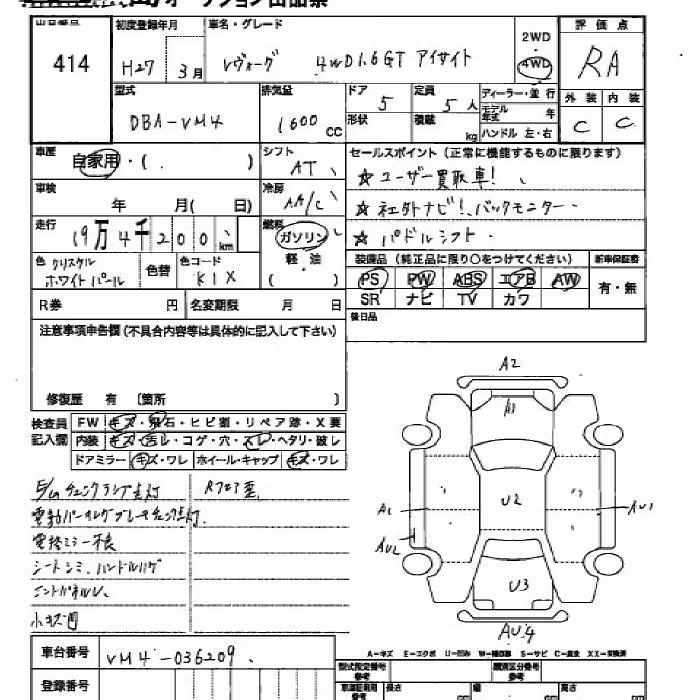 オークション出品票
出品番号 414
初度登録年月 H27 3月
車名・グレード レヴォーグ 4WD1.6GT アイサイト
2WD
4WD
評価点 RA
型式 DBA-VM4
排気量 1600 cc
ドア 5
定員 5人
形状
積載 kg
ディーラー・並行
モデル年式 年
ハンドル 左・右
外装 C
内装 C
車歴 自家用・( )
シフト AT
セールスポイント(正常に機能するものに限ります)
☆ユーザー買取車!
車検 年 月( 日)
冷房 AA/C
☆社外ナビ!、バックモニター
走行 19万4千200km
燃料 ガソリン
軽・油
( )
☆パドルシフト
色 クリスタルホワイトパール
色替
色コード K1X
装備品(純正品に限り○をつけてください)
新車保証書
PS PW ABS エアB AW
SR ナビ TV カワ
有・無
R券 円
名変期限 月 日
後日品
注意事項申告欄(不具合内容等は具体的に記入して下さい)
修復歴 有 〔箇所 〕
検査員記入欄
FW キズ・飛石・ヒビ割・リペア跡・X要
内装 キズ・汚レ・コゲ・穴・スレ・ヘタリ・破レ
ドアミラー キズ・ワレ
ホイール・キャップ キズ・ワレ
E/Gチェックランプ点灯
Rフロア歪
電動パーキングブレーキチェック点灯
電格ミラー不良
シートシミ、ハンドルハゲ
小キズ凹
A2
A1
U2
A1
AU2
AU1
U3
AU4
A-キズ E-エクボ U-凹み W-補修跡 S-サビ C-腐食 XX-交換済
車台番号 VM4-036209
登録番号
型式指定番号
類別区分番号
長さ 幅 高さ